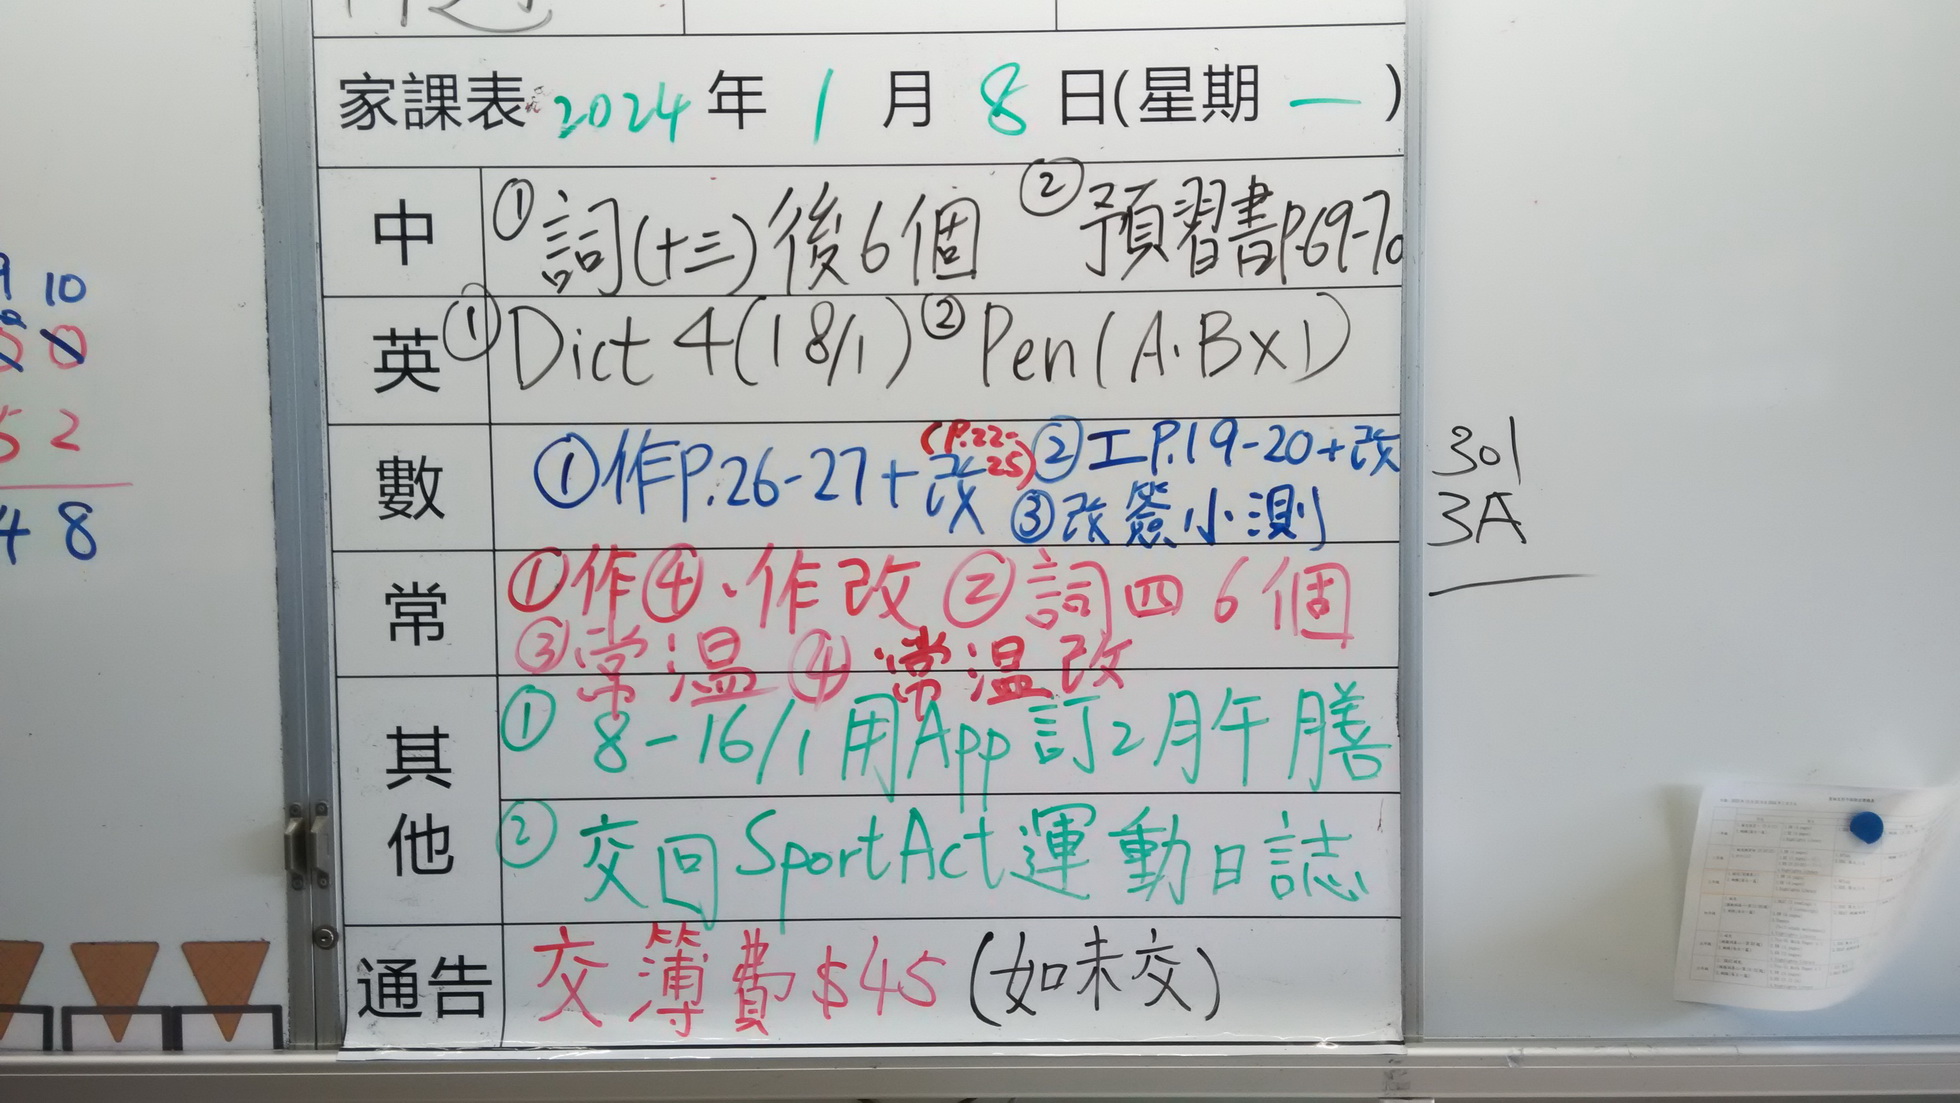 家課表 2024 年 1 月 8 日(星期 一 )
中 ① 詞(十三)後6個 ② 預習書P.69-70
英 ① Dict 4(18/1) ② Pen(A.BX1)
數 ①作P.26-27+改(P.22-25) ②工P.19-20+改
③改簽小測
常 ①作④、作改 ②詞四 6個
③常溫 ④常溫改
其他 ① 8-16/1 用App訂2月午膳
② 交回SportAct運動日誌
通告 交簿費$45(如未交)
301
3A
9 10
5 2
4 8